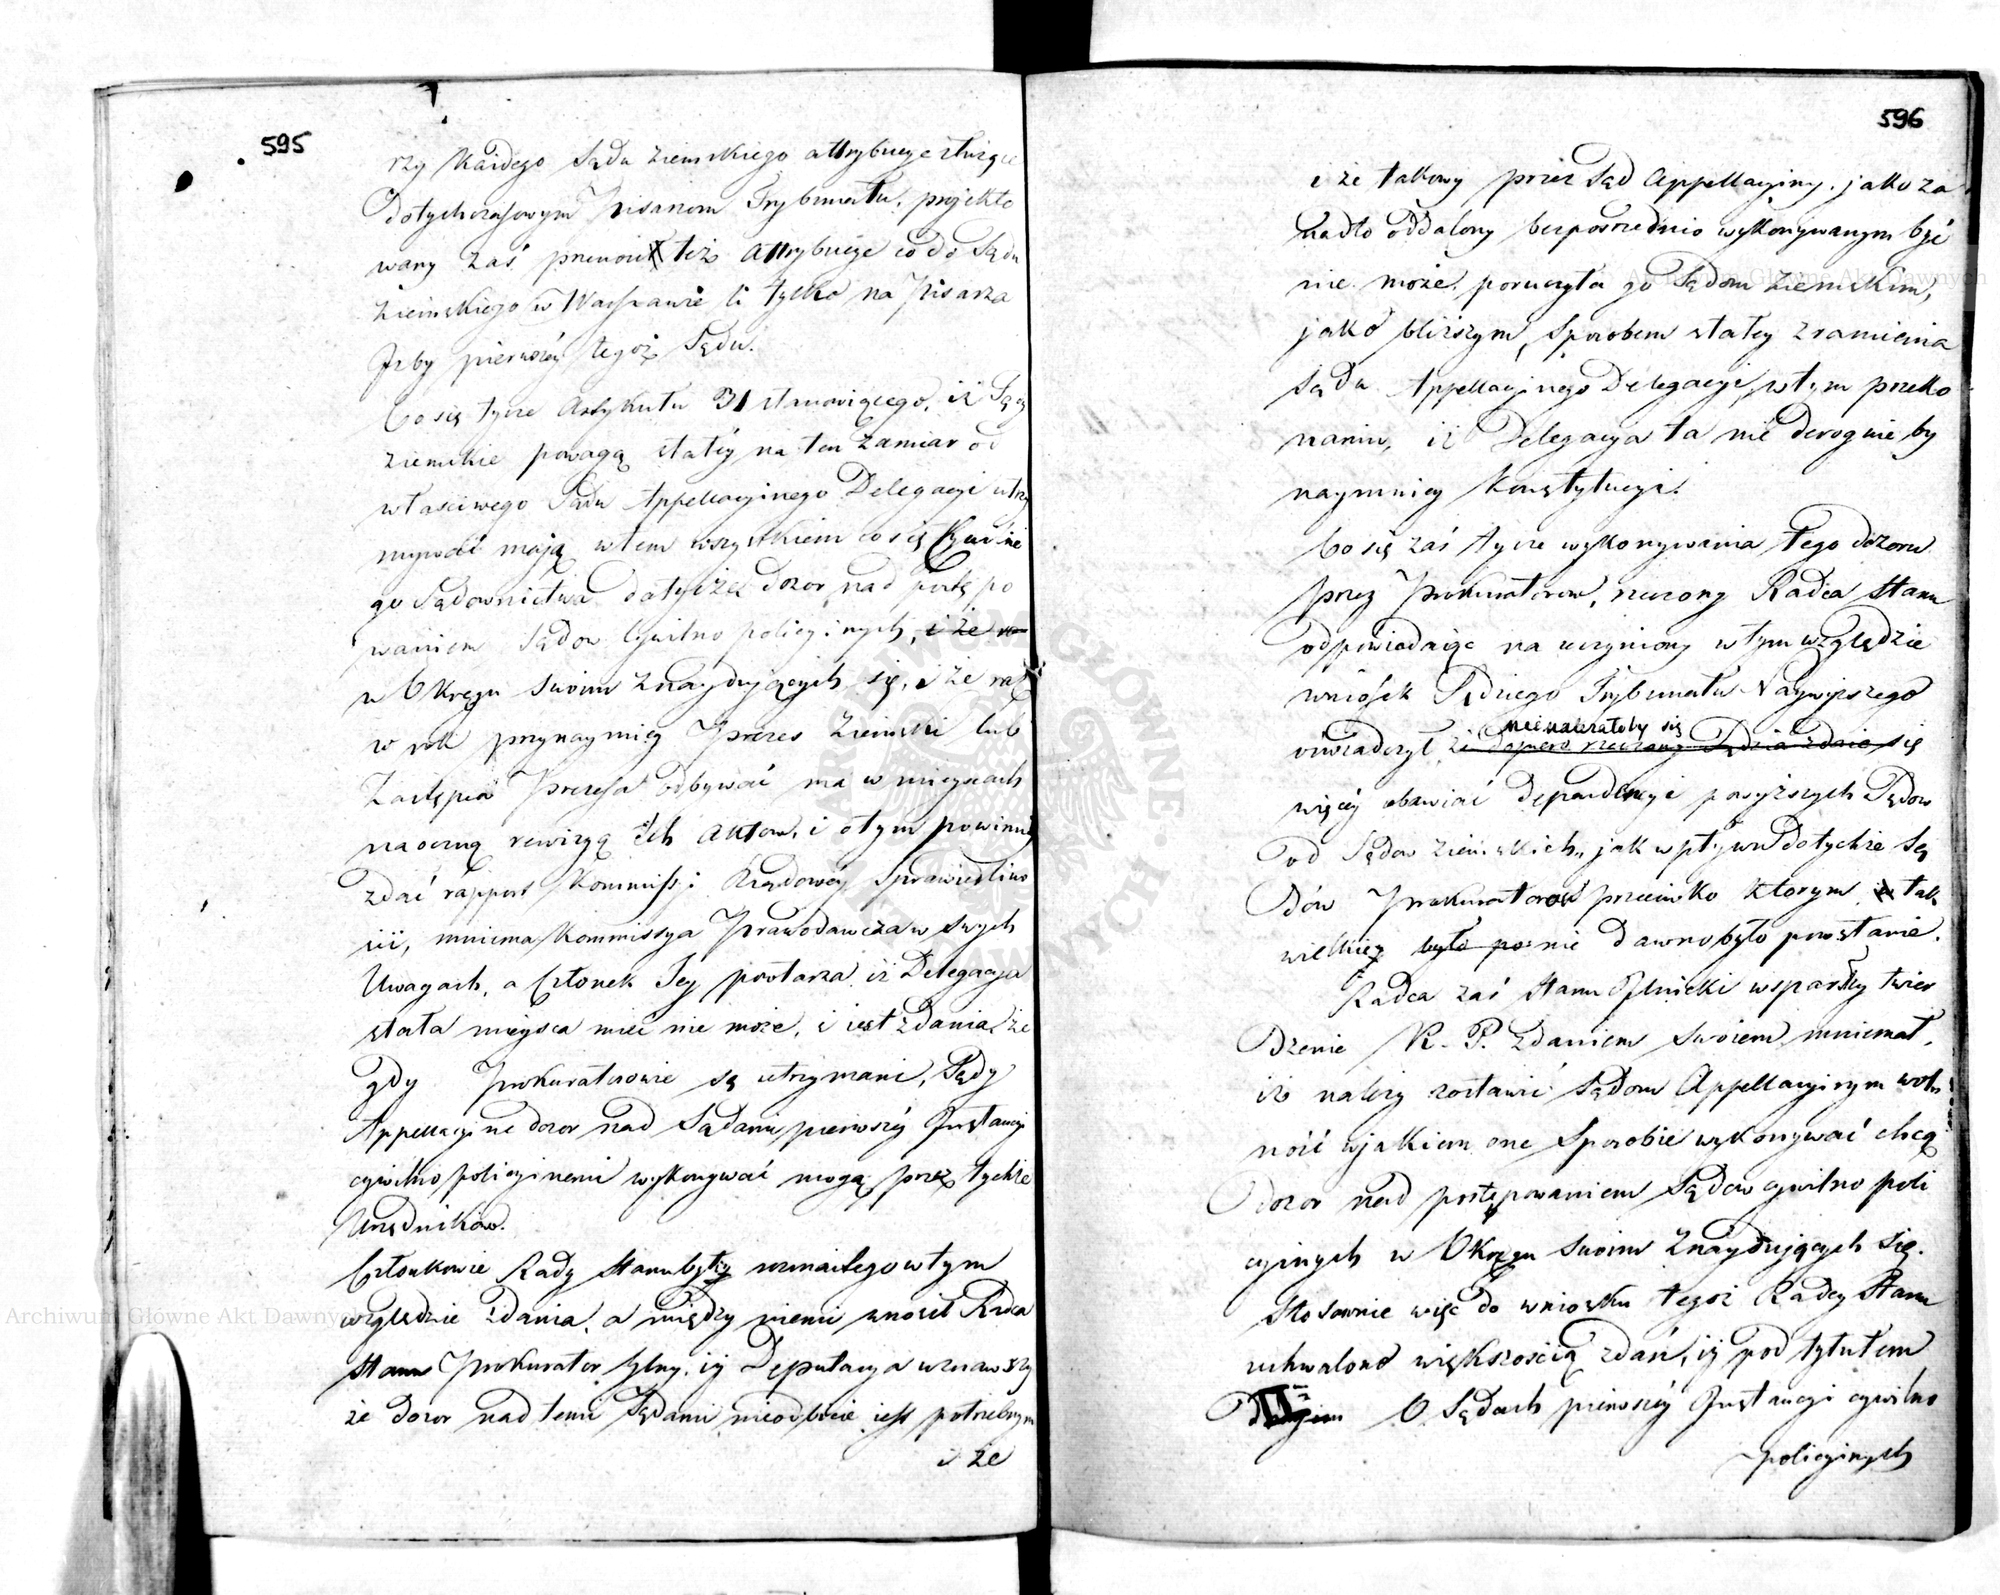 595
rzy każdego Sądu ziemskiego attrybucye służące
dotychczasowym Pisarzom Trybunału, projekto
wany zaś przenosi też attrybucye co do Sądu
Ziemskiego w Warszawie li tylko na Pisarza
Izby pierwszéy tegoż Sądu.
Co się tycze Artykułu 31 stanowiącego, iż Sądy
ziemskie powagą stałéy na ten zamiar od
właściwego Sądu Appellacyinego Delegacyi utrzy
mywać mają w tem wszystkiem co się
go Sądownictwa dotycze dozor nad postępo
waniem Sądow Cywilno policyinych, i że
w Okręgu swoim znayduiących się, i że raz
w rok przynaymniey Prezes Ziemski lub
Zastępca Prezesa odbywać ma w mieyscach
naoczną rewizyą ich aktow, i o tym powinni
zdać rapport Kommissyi Rządowéy Sprawiedliwo
ści, mniema Kommissya Prawodawcza w swych
Uwagach, a Członek Jey powtarza iż Delegacya
stała mieysca mieć nie może, i iest zdania, że
gdy Prokuratorowie są utrzymani, Sądy
Appellacyine dozor nad Sądami pierwszéy Instancyi
cywilno policyinemi wykonywać mogą przez tychże
Urzędników.
Członkowie Rady Stanu byli rozmaitego w tym
względzie zdania, a między niemi wnosił Radca
Stanu Prokurator Glny, iż Deputacya uznawszy
że dozor nad temi Sądami nieodbicie iest potrzebnym
i że
596
i że takowy przez Sąd Appellacyiny, jako za
nadto oddalony bezpośrednio wykonywanym być
nie może, poruczyła go Sądom Ziemskim,
jako bliższym, sposobem stałey z ramienia
Sądu Appellacyinego Delegacyi, w tym przeko
naniu, iż Delegacya ta nie deroguie by
naymniey Konstytucyi.
Co się zaś tycze wykonywania tego dozoru
przez Prokuratorow, rzeczony Radca Stanu
odpowiadaiąc na uczyniony w tym względzie
wniosek Sędziego Trybunału Naywyższego
nie należałoby się
oświadczył, że dopiero rzeczony Sędzia zdaie się
więcéy obawiać dependencyi powyższych Sądow
od Sądow ziemskich, jak wpływu do tychże Są
dów Prokuratorow przeciwko którym tak
wielkie było po nie dawno było powstanie.
Radca zaś Stanu wsparłszy twier
dzenie K. P. zdaniem swoiem mniemał,
iż należy zostawić Sądom Appellacyinym wol
ność w jakiem one sposobie wykonywać chcą
dozor nad postępowaniem Sądow cywilno poli
cyinych w Okręgu swoim znayduiących się.
Stosownie więc do wniosku tegoż Radcy Stanu
uchwalono większością zdań, iż pod tytułem
II O Sądach pierwszéy Instancyi cywilno
policyinych
Archiwum Główne Akt Dawnych